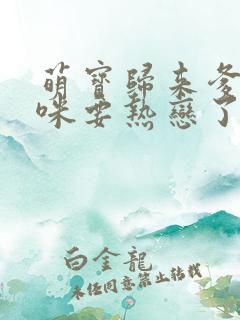 萌寶歸来爹
咪要熱戀了
白金龍
未经同意禁止转载